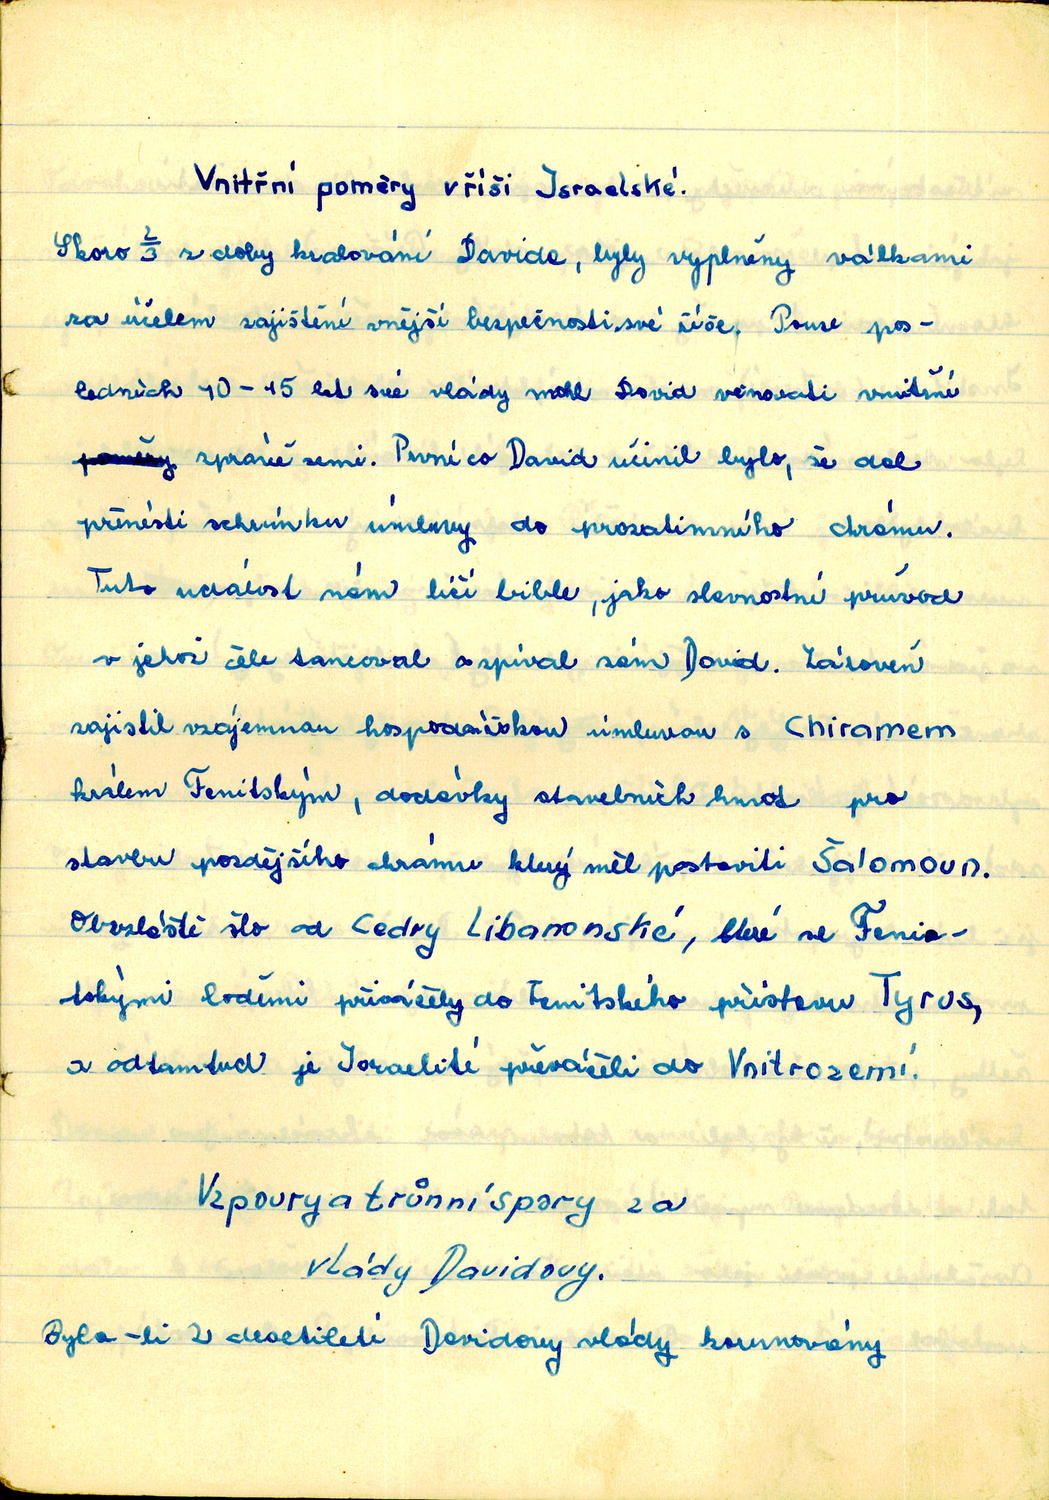 Vnitřní poměry v říši Israelské.
Skoro 2/3 z doby kralování Davida, byly vyplněny válkami
za účelem zajištění vnější bezpečnosti své říše. Pouze pos-
ledních 10-15 let své vlády mohl David věnovati vnitřní
poměry zprávě zemi. První co David učinil bylo, že dal
přenésti schránku úmluvy do prozatimního chrámu.
Tuto událost nám líčí bible, jako slavnostní průvod
v jehož čele tancoval a zpíval sám David. Zároveň
zajistil vzájemnou hospodářskou úmluvou s Chiramem
králem Fenitským, dodávky stavebních hmot pro
stavbu pozdějšího chrámu který měl postaviti Šalomoun.
Obvzláště šlo o Cedry Libanonské, které se Fenic-
tskými loděmi přivážely do Fenitského přístavu Tyrus,
a odtamtud je Israelité převáželi do Vnitrozemí.
Vzpoury a trůnní spory za
vlády Davidovy.
Byla-li 2 desetiletí Davidovy vlády korunovány